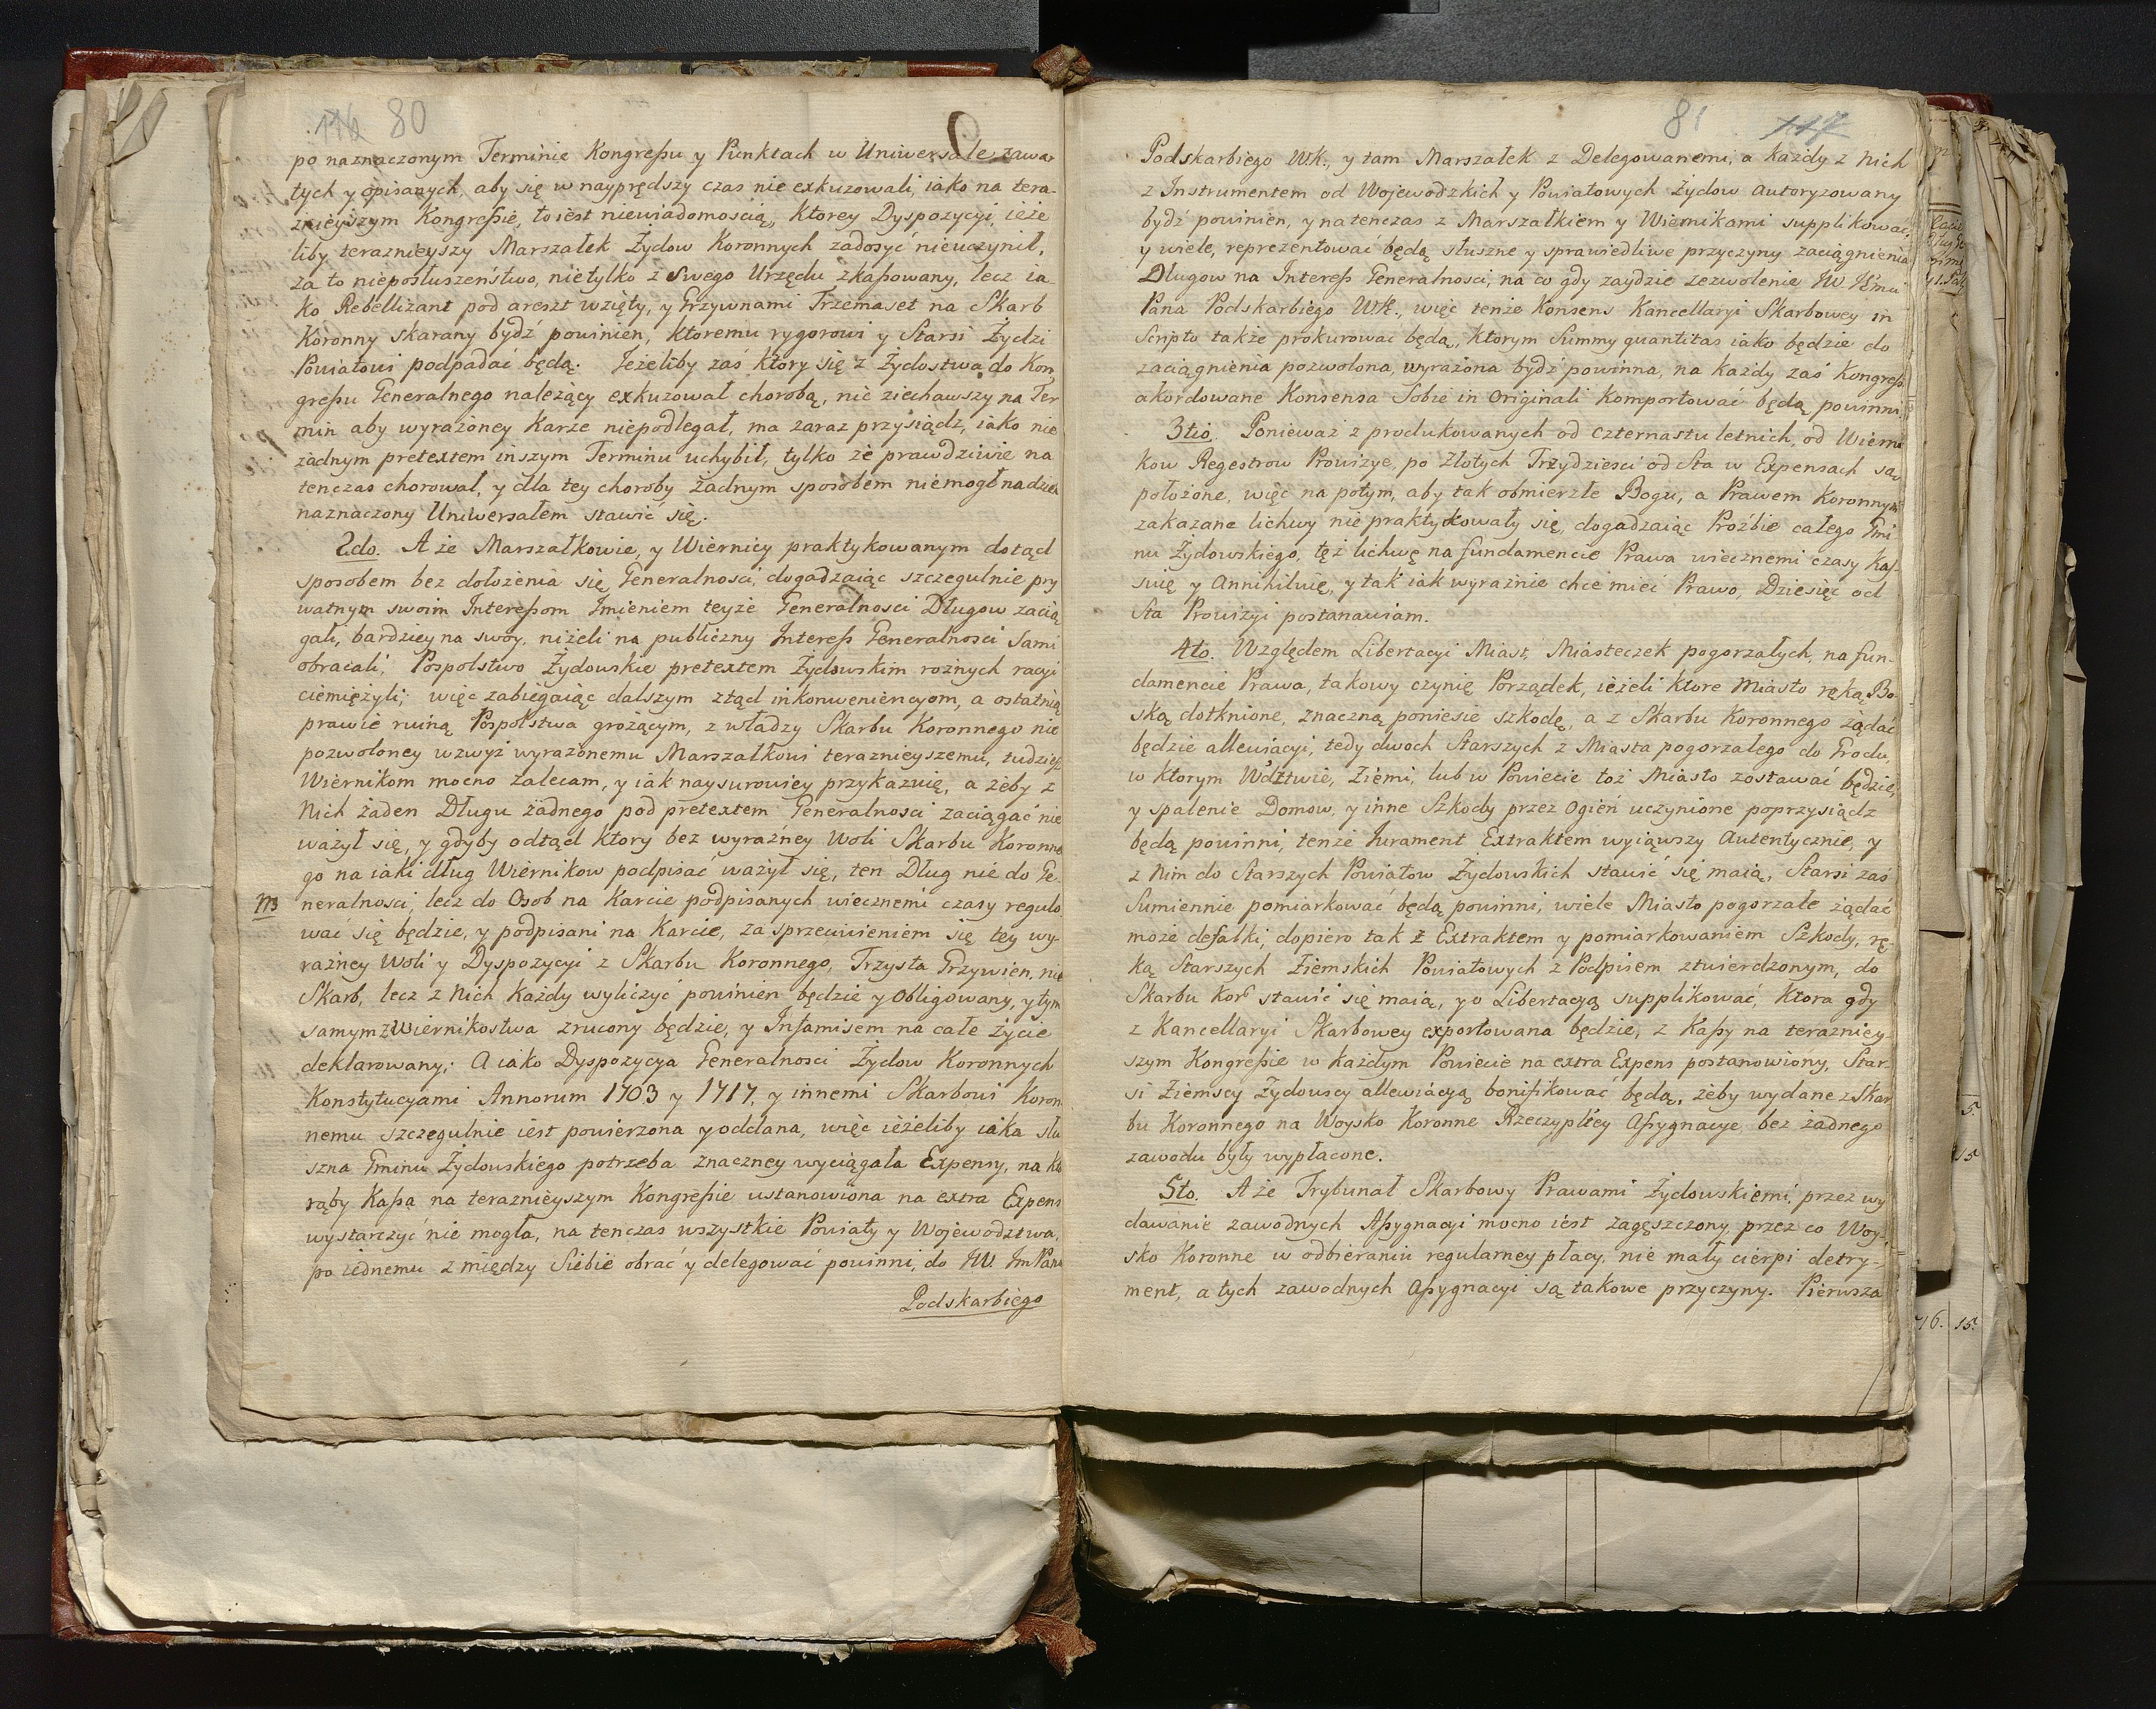 116 80
po naznaczonym Terminie Kongreßu y Punktach w Uniwersale zawar
tych y opisanych, aby się w nayprędszy czas nie exkuzowali, iako na tera-
znieyszym Kongreßie, to iest niewiadomoscią, ktorey Dyspozycyi, ieże
liby teraznieyszy Marszałek Żydow Koronnych zadosyć nieuczynił,
za to nieposłuszeństwo, nietylko z swego Urzędu zkaßowany, lecz ia-
ko Rebellizant pod areszt wzięty, y Grzywnami Trzemaset na Skarb
Koronny skarany bydź powinien, ktoremu rygorowi y Starsi Żydzi
Powiatowi podpadać będą. Jeżeliby zaś ktory się z Żydostwa do Kon
greßu Generalnego należący exkuzował chorobą, nie ziechawszy na Ter
min aby wyrażoney karze niepodlegał, ma zaraz przysiądz, iako nie
żadnym pretextem inszym Terminu uchybił, tylko że prawdziwie na
tenczas chorował, y dla tey choroby żadnym sposobem niemogł na dzień
naznaczony Uniwersałem stawić się.
2do. A że Marszałkowie, y Wiernicy praktykowanym dotąd
sposobem bez dołożenia się Generalnosci, dogadzaiąc szczegulnie pry
watnym swoim Intereßom Imieniem teyże Generalnosci Długow zacią
gali, bardziey na swoy, niżeli na publiczny Interess Generalnosci sami
obracali, Pospolstwo Żydowskie pretextem Żydowskim rożnych racyi
ciemiężyli; więc zabiegaiąc dalszym ztąd inkonweniencyom, a ostatnią
prawie ruiną Pospolstwa grożącym, z władzy Skarbu Koronnego nie
pozwoloney wzwyż wyrażonemu Marszałkowi teraznieyszemu, tudzież
Wiernikom mocno zalecam, y iak naysurowiey przykazuię, a żeby z
Nich żaden Długu żadnego pod pretextem Generalnosci zaciągać nie
ważył się, y gdyby odtąd ktory bez wyraźney Woli Skarbu Koronne
go na iaki dług Wiernikow podpisać ważył się, ten Dług nie do Ge-
neralnosci, lecz do Osob na Karcie podpisanych wiecznemi czasy regulo
wać się będzie, y podpisani na Karcie, za sprzeciwieniem się tey wy-
raźney Woli y Dyspozycyi z Skarbu Koronnego, Trzysta Grzywien, nie
Skarb, lecz z Nich każdy wyliczyć powinien będzie y obligowany, y tym
samym z Wiernikostwa zrucony będzie, y Infamisem na całe życie
deklarowany; A iako Dyspozycya Generalnosci Żydow Koronnych
Konstytucyami Annorum 1703 y 1717, y innemi Skarbowi Koron
nemu szczegulnie iest powierzona y oddana, więc ieżeliby iaka słu
szna Gminu Żydowskiego potrzeba znaczney wyciągała Expensy, na kto
rąby Kaßa na teraznieyszym Kongreßie ustanowiona na extra Expens
wystarczyć nie mogła, na tenczas wszystkie Powiaty y Wojewodztwa,
po iednemu z między Siebie obrać y delegować powinni, do JW. Jm Pana
Podskarbiego
81 117
Podskarbiego WK., y tam Marszałek z Delegowanemi, a każdy z nich
z Instrumentem od Wojewodzkich y Powiatowych Żydow autoryzowany
bydź powinien, y natenczas z Marszałkiem y Wiernikami supplikować,
y wiele, reprezentować będą słuszne y sprawiedliwe przyczyny zaciągnienia
Długow na Interess Generalnosci, na co gdy zaydzie zezwolenie JW. Jmci
Pana Podskarbiego WK., więc tenże Konsens Kancellaryi Skarbowey in
Scripto także prokurować będą, ktorym Summy quantitas iako będzie do
zaciągnienia pozwolona, wyrażona bydź powinna, na każdy zaś Kongreß
akordowane Konsensa Sobie in Originali komportować będą powinni.
3tio. Ponieważ z produkowanych od czternastu letnich, od Wierni
kow Regestrow Prowizye, po Złotych Trzydziesci od Sta w Expensach są
położone, więc na potym, aby tak obmierzłe Bogu, a Prawem Koronnym
zakazane lichwy niepraktykowały się, dogadzaiąc Proźbie całego Gmi
nu Żydowskiego, tęż lichwę na fundamencie Prawa wiecznemi czasy Kas-
suię y Annihiluię, y tak iak wyraźnie chce mieć Prawo, Dziesięć od
Sta Prowizyi postanawiam.
4to. Względem Libertacyi Miast, Miasteczek pogorzałych, na fun-
damencie Prawa, takowy czynię Porządek, ieżeli ktore Miasto ręką Bo
ską dotknione, znaczną poniesie szkodę, a z Skarbu Koronnego żądać
będzie allewiacyi, tedy dwoch Starszych z Miasta pogorzałego do Grodu,
w ktorym Wdztwie, Ziemi, lub w Powiecie toż Miasto zostawać będzie,
y spalenie Domow, y inne Szkody przez ogień uczynione poprzysiądz
będą powinni, tenże Jurament Extraktem wyiąwszy Autentycznie, y
z Nim do Starszych Powiatow Żydowskich stawić się maią, Starsi zaś
Sumiennie pomiarkować będą powinni, wiele Miasto pogorzałe żądać
może defalki, dopiero tak z Extraktem y pomiarkowaniem Szkody, rę-
ką Starszych Ziemskich Powiatowych z Podpisem ztwierdzonym, do
Skarbu Kor stawić się maią, y o Libertacyą supplikować, ktora gdy
z Kancellaryi Skarbowey exportowana będzie, z Kaßy na teraznieу-
szym Kongreßie w każdym Powiecie na extra Expens postanowiony, Star-
si Ziemscy Żydowscy allewiacyą bonifikować będą, żeby wydane z Skar
bu Koronnego na Woysko Koronne Rzeczyplіey Aßygnacye, bez żadnego
zawodu były wypłacone.
5to. A że Trybunał Skarbowy Prawami Żydowskiemi, przez wy
dawanie zawodnych Aßygnacyi mocno iest zagęszczony, przez co Woy-
sko Koronne w odbieraniu regularney płacy, nie mały cierpi detry-
ment, a tych zawodnych Aßygnacyi są takowe przyczyny. Pierwsza